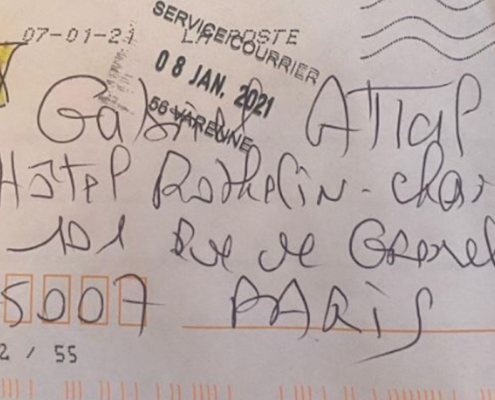 07-01-21
LA POSTE
SERVICE COURRIER
08 JAN. 2021
56 VARENNE
Gabriel ATTal
Hôtel Rothelin-Char
101 Rue de Grenel
5007 PARIS
2 / 55